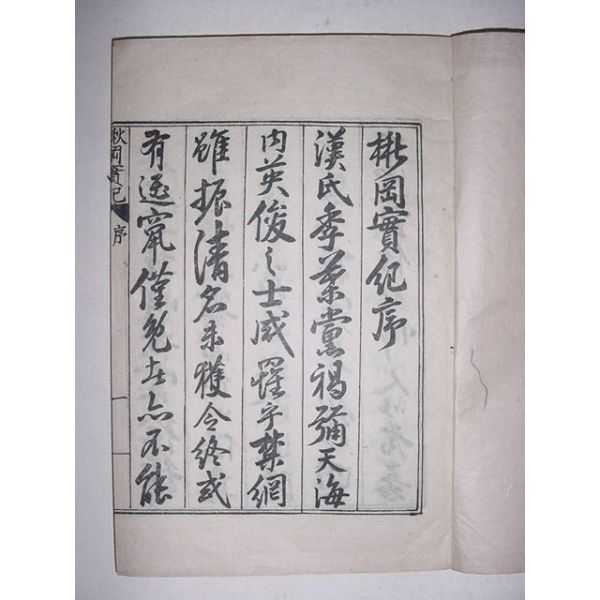 秋岡實紀序
漢氏季葉黨禍彌天海
内英俊之士咸罹乎禁網
雖振清名未獲令終或
有竄僅免者亦不能
秋岡實記 序